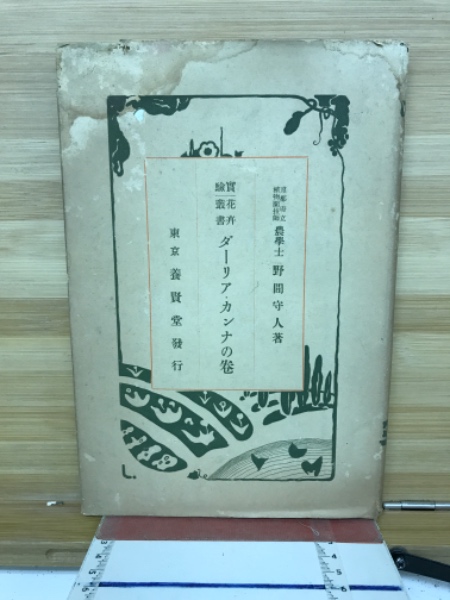 京都府立
植物園技師
農學士 野間守人著
實驗花卉叢書
ダーリア・カンナの卷
東京 養賢堂發行
L.